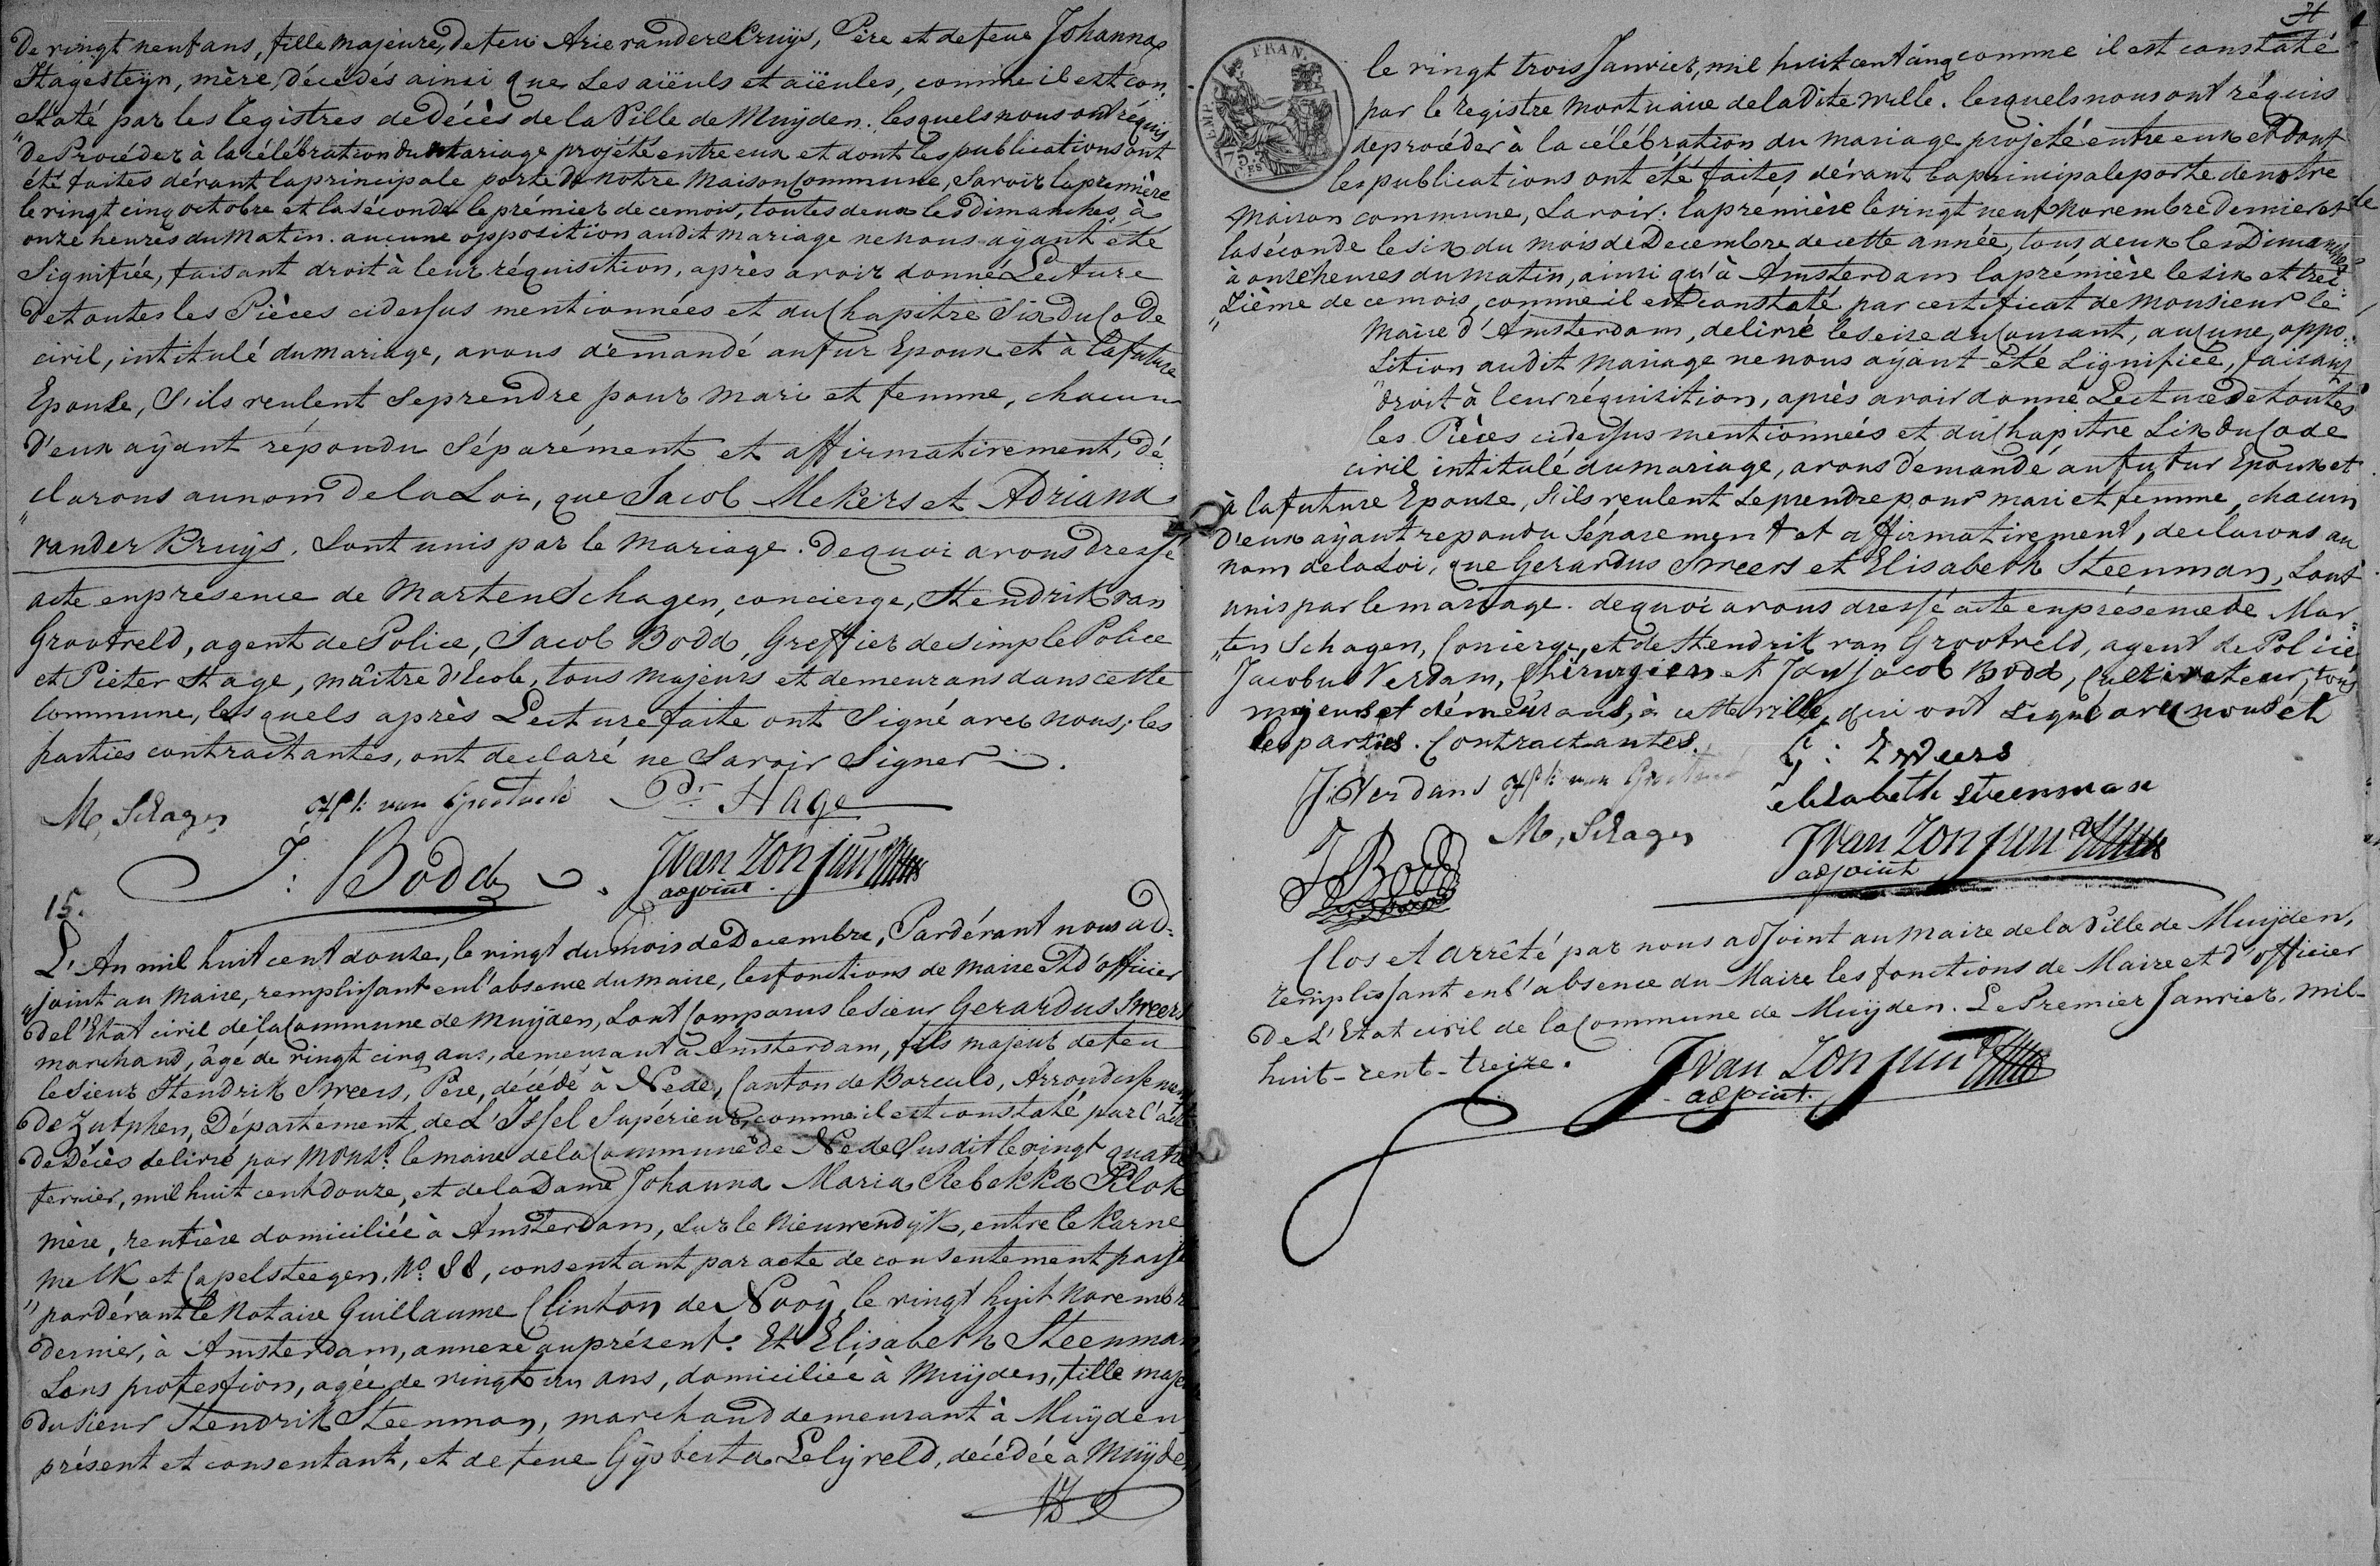 De vingt neuf ans, fille majeure, de feu Arie van der Kruijs, Père et de feue Johanna
Hagesteijn, mère, décédés ainsi que les aïeuls et aïeules, comme il est con-
staté par les Registres de Décès de la Ville de Muijden. lesquels nous ont réquis
"De Procéder à la célébration du Mariage projété entre eux et dont les publications ont
été faites dévant la principale porte de notre Maison Commune, Savoir la première
le vingt cinq octobre et la séconde le prémier de ce mois, toutes deux les dimanches, à
onze heures du Matin. aucune opposition au dit mariage ne nous aÿant été
Signifiée, faisant droit à leur réquisition, après avoir donné Lecture
de toutes les Pièces cidessus mentionnées et du Chapitre Six du Code
civil, intitulé du mariage, avons démandé au fur Epoux et à la future
Epouse, S'ils veulent Se prendre pour mari et femme, chacun
d'eux aÿant répondu Séparément et affirmativement, dé:
"clarons au nom de la Loi, que Jacob Mekers et Adriana
van der Kruijs. Sont unis par le Mariage. De quoi avons dressé
acte en présence de Marten Schagen, concierge, Hendrik van
Grootveld, agent de Police, Jacob Bodd, Greffier de simple Police
et Pieter Hage, maître d'Ecole, tous majeurs et demeurans dans cette
Commune, lesquels après Lecture faite ont Signé avec nous; les
parties contractantes, ont declaré ne Savoir Signer.
M, Schagen Hk: van Grootveld Pr. Hage
J: Bodd J van Zon jun
adjoint.
15.
L'An mil huit cent douze, le vingt du Mois de Decembre, Pardévant nous ad:
"joint au Maire, remplissant en l'absence du maire, les fonctions de Maire et d'officier
de l'Etat civil de la Commune de Muijden, Sont Comparus le sieur Gerardus Sweers
marchand, âgé de vingt cinq ans, demeurant à Amsterdam, fils majeur de feu
le Sieur Hendrik Sweers, Père, décédé à Nede, Canton de Borculo, Arrondissement
de Zutphen, Département de L'Issel Supérieur, comme il est constaté par l'acte
de Décès delivré par Monsr. le maire de la Commune de Nede Susdit le vingt quatre
fevrier, mil huit cent douze, et de la Dame Johanna Maria Rebekka Klok
mère, rentière domiciliée à Amsterdam, Sur le Nieuwendÿk, entre le Karne
melk et Capelsteegen, No: 88, consentant par acte de consentement passé
"pardévant le Notaire Guillaume Clinton de Nooÿ, le vingt huit Novembre
dernier, à Amsterdam, annexé au présent. Et Elisabeth Steenman
Sans profession, agée de vingt un ans, domiciliée à Muijden, fille maje
du Sieur Hendrik Steenman, marchand demeurant à Muijden
présent et consentant, et de feue Gÿsberta Lelyveld, décédée à Muijden
le vingt trois Janvier, mil huit cent cinq comme il est constaté
par le registre Mortuaire de la Dite Ville. lesquels nous ont réquis
de procéder à la célébration du mariage projeté entre eux et dont
les publications ont été faites dévant la principale porte de notre
Maison commune, Savoir: la première le vingt neuf Novembre dernier et
la séconde le six du mois de Decembre de cette année, tous deux les Dimanches
à onze heures du matin, ainsi qu'à Amsterdam la prémière le six et trei:
"zième de ce mois, comme il est constaté par certificat de Monsieur le
Maire d'Amsterdam, delivré le seize du Courant, aucune oppo:
"sition au dit Mariage ne nous aÿant été Signifiée, faisant
droit à leur réquisition, après avoir donné Lecture de toutes
les Pièces cidessus mentionnées et du Chapitre Six du Code
civil intitulé du mariage, avons démandé au futur Epoux et
à la future Epouse, S'ils veulent Se prendre pour mari et femme, chacun
d'eux aÿant repondu Séparement et affirmativement, declarons au
nom de la Loi, que Gerardus Sweers et Elisabeth Steenman, Sont
unis par le mariage. de quoi avons dressé acte en présence de Mar:
"ten Schagen, Concierge, et de Hendrik van Grootveld, agent de Police
Jacobus Verdam, Chirurgien et Jan Jacob Bodd, Cultivateur, tous
majeurs et démeurans, à cette ville, qui ont Signé avec nous et
les parties. Contractantes.
G: Sweers
J: Verdam Hk: van Grootveld
elisabeth steenman
M, Schagen
J J Bodd
J van Zon jun
adjoint
Clos et Arrêté par nous adjoint au Maire de la Ville de Muijden,
remplissant en l'absence du Maire les fonctions de Maire et d'officier
de L'Etat civil de la Commune de Muijden. Le Premier Janvier, mil-
huit-cent-treize.
J van Zon jun
adjoint.